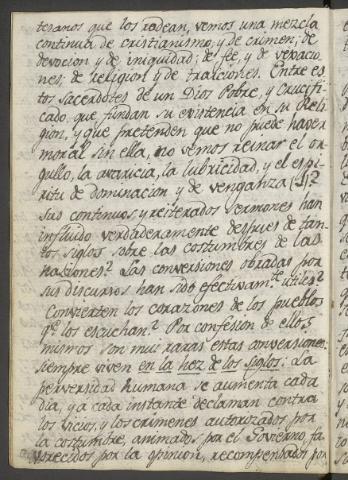 tesanos que los rodean, vemos una mezcla
continua de cristianismo, y de crimen; de
devocion y de iniquidad; de fé, y de vexacio-
nes; de religion y de traiciones. Entre es-
tos sacerdotes de un Dios Pobre, y crucifi-
cado, que fundan su existencia en su Reli-
gion, y que pretenden que no puede haver
moral sin ella, no vemos reinar el or-
gullo, la avaricia, la lubricidad, y el espi-
ritu de dominacion y de venganza (1)?
Sus continuos y reiterados sermones han
influido verdaderamente despues de tan-
tos siglos sobre las costumbres de las
naziones? Las conversiones obradas por
sus discursos han sido efectivam.te utiles?
Convierten los corazones de los pueblos
q.e los escuchan? Por confesion de ellos
mismos son mui raras estas conversiones:
siempre viven en la hez de los siglos: la
perversidad humana se aumenta cada
dia, y a cada instante declaman contra
los vicios, y los crimenes autorizados por
la costumbre, animados por el Govierno, fa-
vorecidos por la opinion, recompensados por